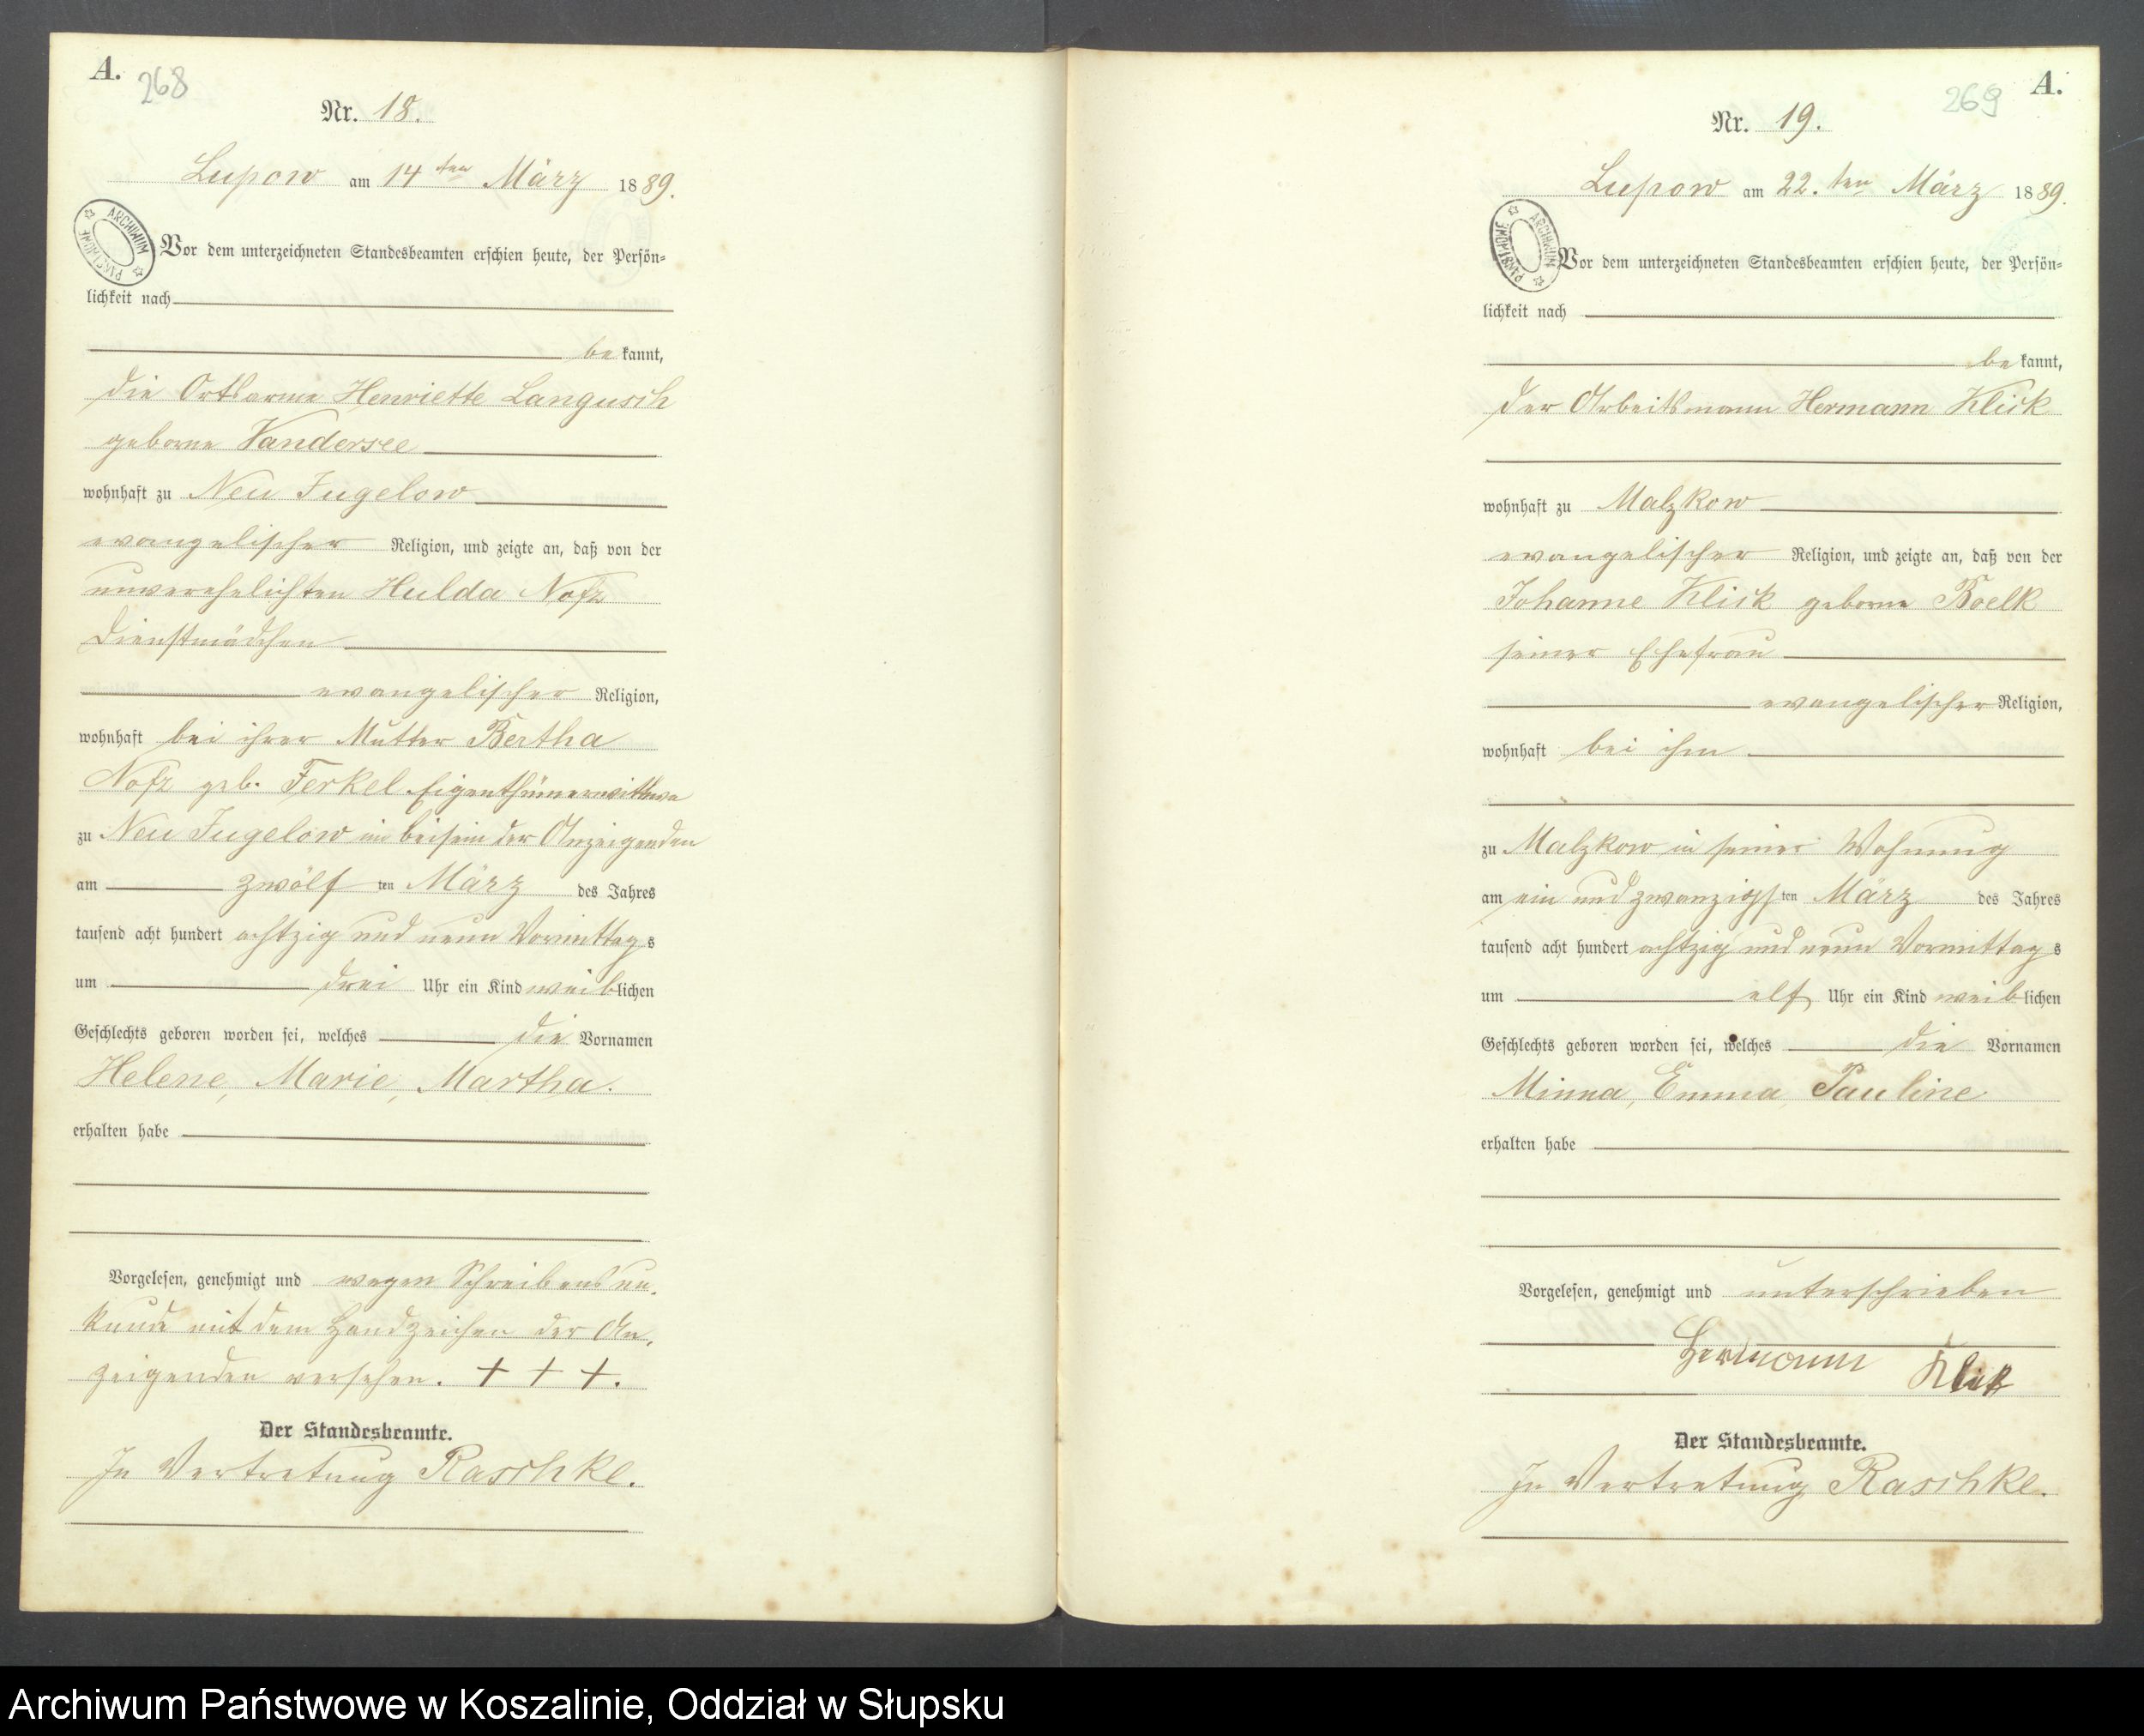 A.
268
Nr. 18.
Lupow am 14 ten März 1889.
ARCHIWUM PAŃSTWOWE
Vor dem unterzeichneten Standesbeamten erschien heute, der Persön=
lichkeit nach
be kannt,
die Ortsarme Henriette Langusch
geborne Vandersee
wohnhaft zu Neu Jugelow
evangelischer Religion, und zeigte an, daß von der
unverehelichten Hulda Nofz
Dienstmädchen
evangelischer Religion,
wohnhaft bei ihrer Mutter Bertha
Nofz geb. Ferkel Eigenthümerwittwe
zu Neu Jugelow im beisein der Anzeigenden
am zwölf ten März des Jahres
tausend acht hundert achtzig und neun Vormittags
um drei Uhr ein Kind weiblichen
Geschlechts geboren worden sei, welches die Vornamen
Helene, Marie, Martha.
erhalten habe
Vorgelesen, genehmigt und wegen Schreibensun-
kunde mit dem Handzeichen der An-
zeigenden versehen. + + +.
Der Standesbeamte.
In Vertretung Raschke.
A.
269
Nr. 19.
Lupow am 22. ten März 1889.
ARCHIWUM PAŃSTWOWE
Vor dem unterzeichneten Standesbeamten erschien heute, der Persön=
lichkeit nach
be kannt,
der Arbeitsmann Hermann Klick
wohnhaft zu Malzkow
evangelischer Religion, und zeigte an, daß von der
Johanne Klick geborne Boelk
seiner Ehefrau
evangelischer Religion,
wohnhaft bei ihm
zu Malzkow in seiner Wohnung
am ein und zwanzigsten März des Jahres
tausend acht hundert achtzig und neun Vormittags
um elf Uhr ein Kind weiblichen
Geschlechts geboren worden sei, welches die Vornamen
Minna, Emma, Pauline
erhalten habe
Vorgelesen, genehmigt und unterschrieben
Hermann Klick
Der Standesbeamte.
In Vertretung Raschke.
Archiwum Państwowe w Koszalinie, Oddział w Słupsku